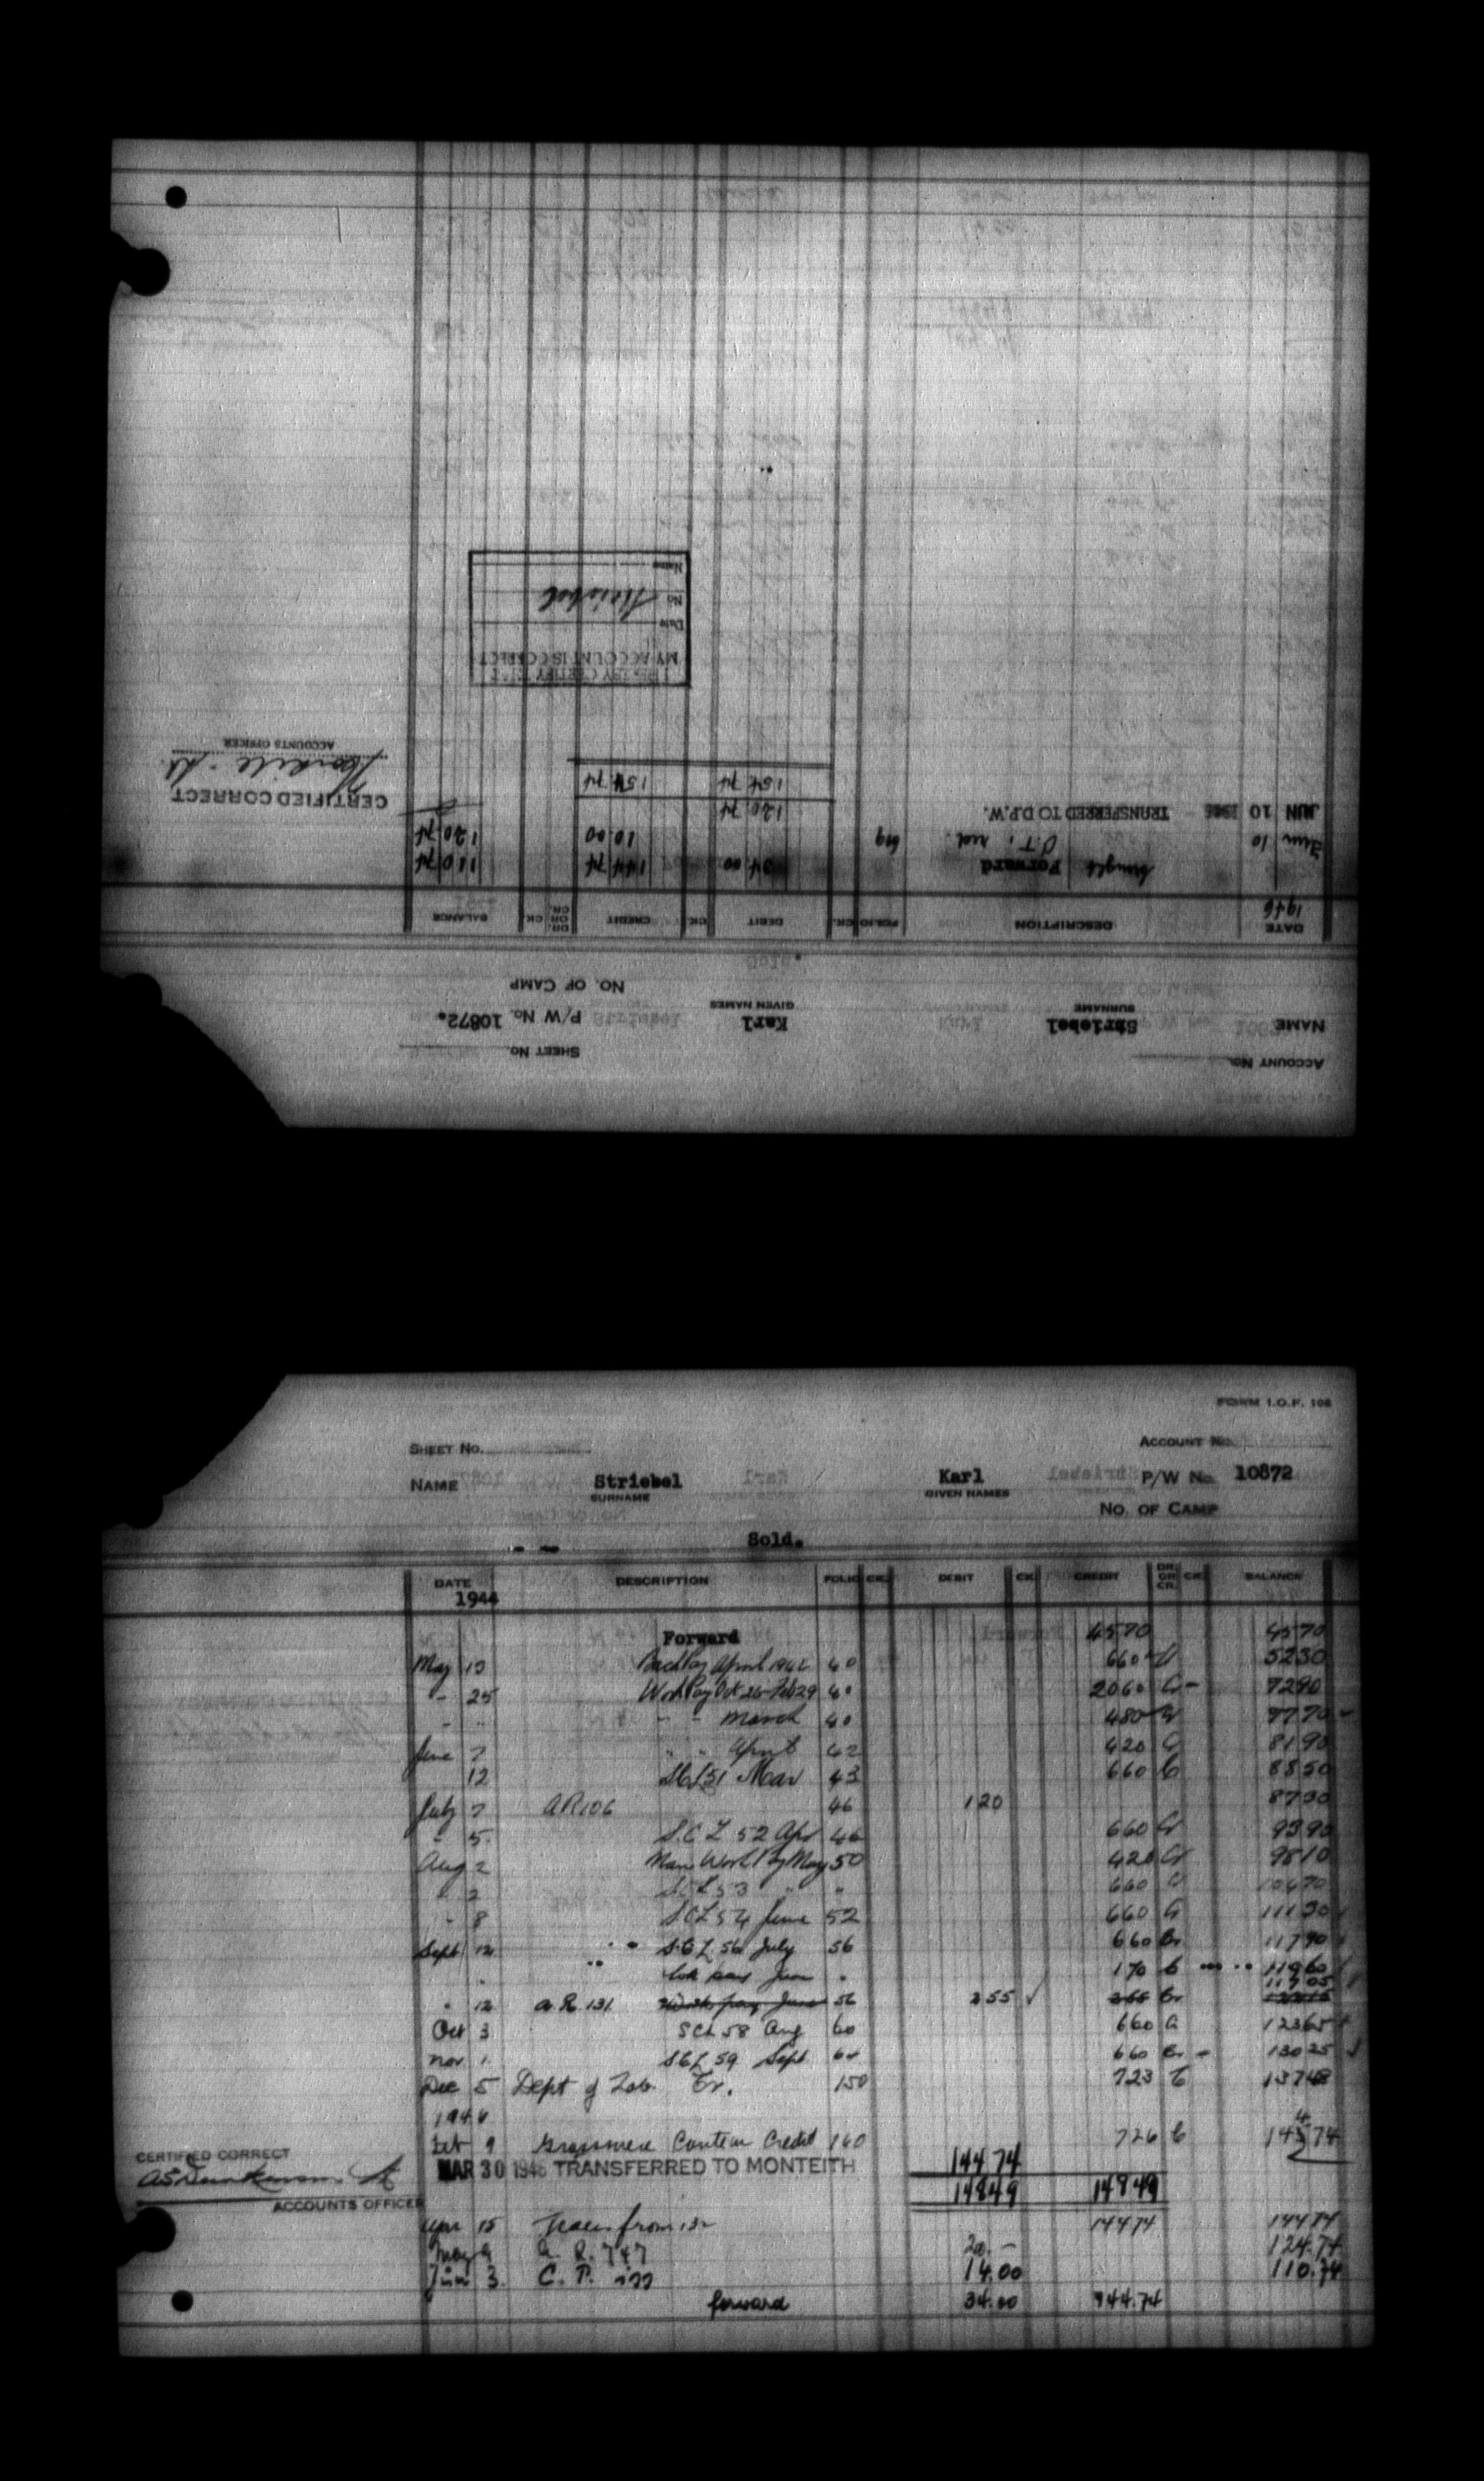 ACCOUNT No.
SHEET No.
NAME Striebel Karl P/W No. 10872.
SURNAME GIVEN NAMES
NO. OF CAMP
DATE DESCRIPTION FOLIO CK. DEBIT CK. CREDIT DR. OR CR. CK. BALANCE
1946
brought Forward 34 00 144 74 110 74
Jun 10 O.T. red. 619 10 00 120 74
JUN 10 1946 TRANSFERRED TO D.P.W. 120 74
154 74 154 74
CERTIFIED CORRECT
ACCOUNTS OFFICER
I HEREBY CERTIFY THAT
MY ACCOUNT IS CORRECT
Date
No
Striebel
Name
FORM I.O.F. 108
SHEET No. ACCOUNT No.
NAME Striebel Karl P/W No. 10872
SURNAME GIVEN NAMES
NO. OF CAMP
Sold.
DATE DESCRIPTION FOLIO CK. DEBIT CK. CREDIT DR. OR CR. CK. BALANCE
1944
Forward 45 70 45 70
May 10 Back Pay April 1942 40 6 60 Cr 52 30
- 25 Work Pay Oct 26-Feb 29 40 20 60 Cr - 72 90
" " " - March 40 4 80 Cr 77 70
June 7 " " April 42 4 20 Cr 81 90
12 SCL 51 Mar 43 6 60 Cr 88 50
July 7 AR 106 46 1 20 87 30
- 5 S.C.L 52 Apr 46 6 60 Cr 93 90
Aug 2 Man Work Pay May 50 4 20 Cr 98 10
" 2 SCL 53 " " 6 60 Cr 104 70
- 8 SCL 54 June 52 6 60 Cr 111 30
Sept 12 S.C.L. 56 July 56 6 60 Cr 117 90
" June " 1 70 Cr 119 60
117 05
" 12 A.R. 131 Work pay June 56 2 55 2 55 Cr
Oct 3 SCL 58 Aug 60 6 60 Cr 123 65
Nov 1 SCL 59 Sept 64 6 60 Cr - 130 25
Dec 5 Dept of Lab. Tr. 150 7 23 Cr 137 48
1946
Feb 9 Grassmere Canteen Credit 160 7 26 Cr 144 74
MAR 30 1946 TRANSFERRED TO MONTEITH 144 74
148 49 148 49
CERTIFIED CORRECT
ACCOUNTS OFFICER
Apr 15 Trans from 132 144 74 144 74
May 9 A. R. 747 20. - 124.74
Jun 3. C. P. 14.00 110.74
forward 34.00 144.74